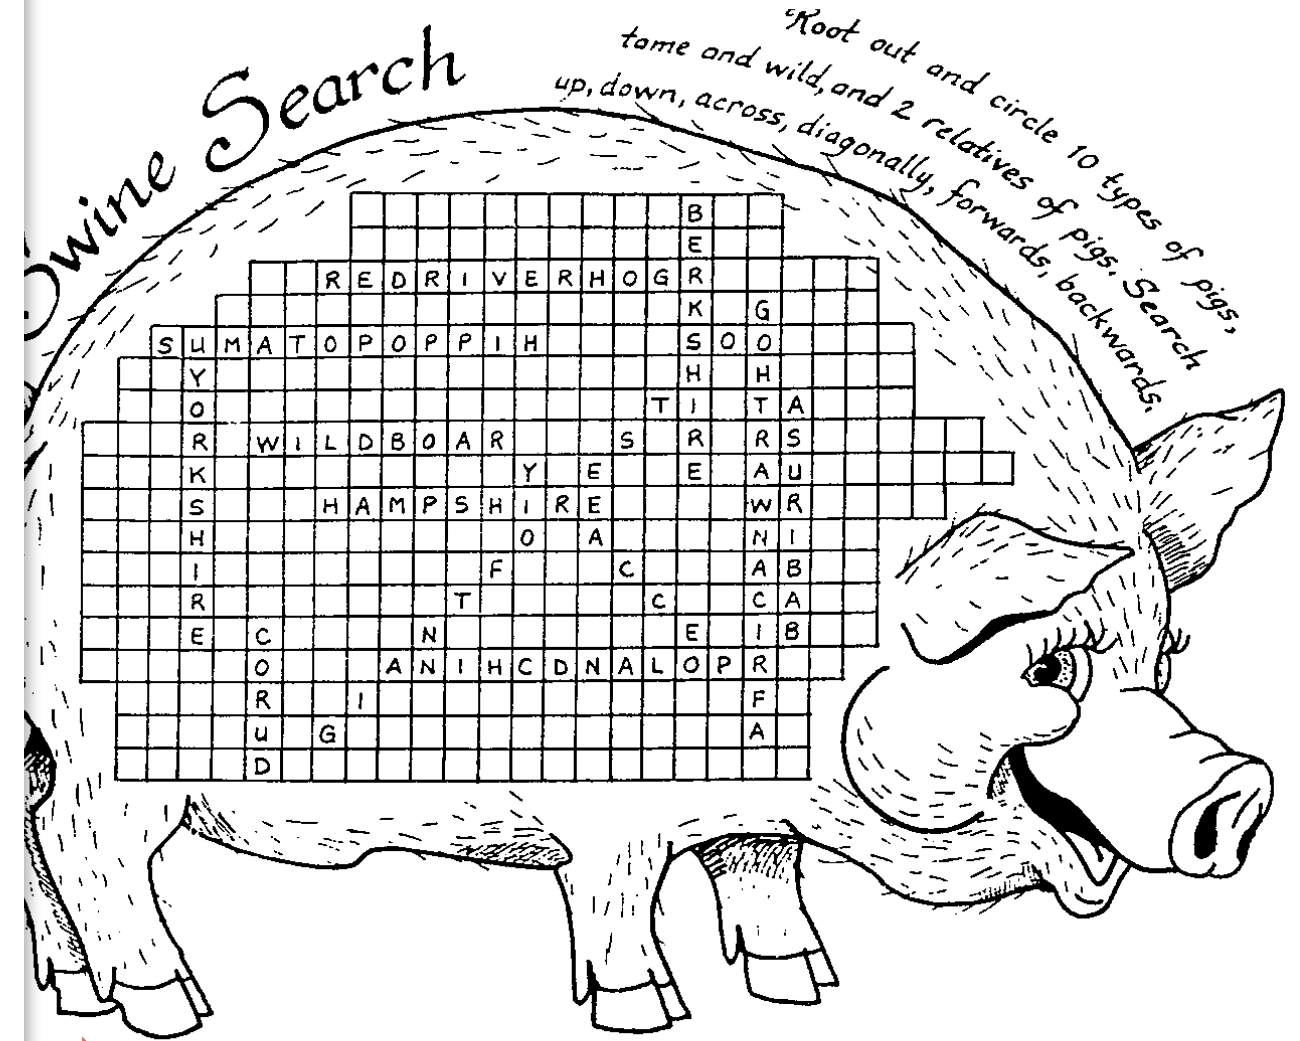 Swine Search
Root out and circle 10 types of pigs,
tame and wild, and 2 relatives of pigs. Search
up, down, across, diagonally, forwards, backwards.
B
E
R E D R I V E R H O G R
K G
S U M A T O P O P P I H S O O
Y H H
O T I T A
R W I L D B O A R S R R S
K Y E E A U
S H A M P S H I R E W R
H O A N I
I F C A B
R T C C A
E C N E I B
O A N I H C D N A L O P R
R I F
U G A
D